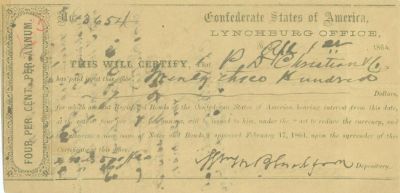 No 3654
Confederate States of America,
LYNCHBURG OFFICE,
April 1st 1864
THIS WILL CERTIFY, that P. D. Christian & Co
has paid in at this office Twenty three Hundred
Dollars,
for which amount Registered Bonds of the Confederate States of America, bearing interest from this date,
at four per cent per annum, will be issued to him, under the "Act to reduce the currency, and
authorize a new issue of Notes and Bonds," approved February 17, 1864, upon the surrender of this
Certificate at this office.
Depositary.
FOUR PER CENT. PER ANNUM.